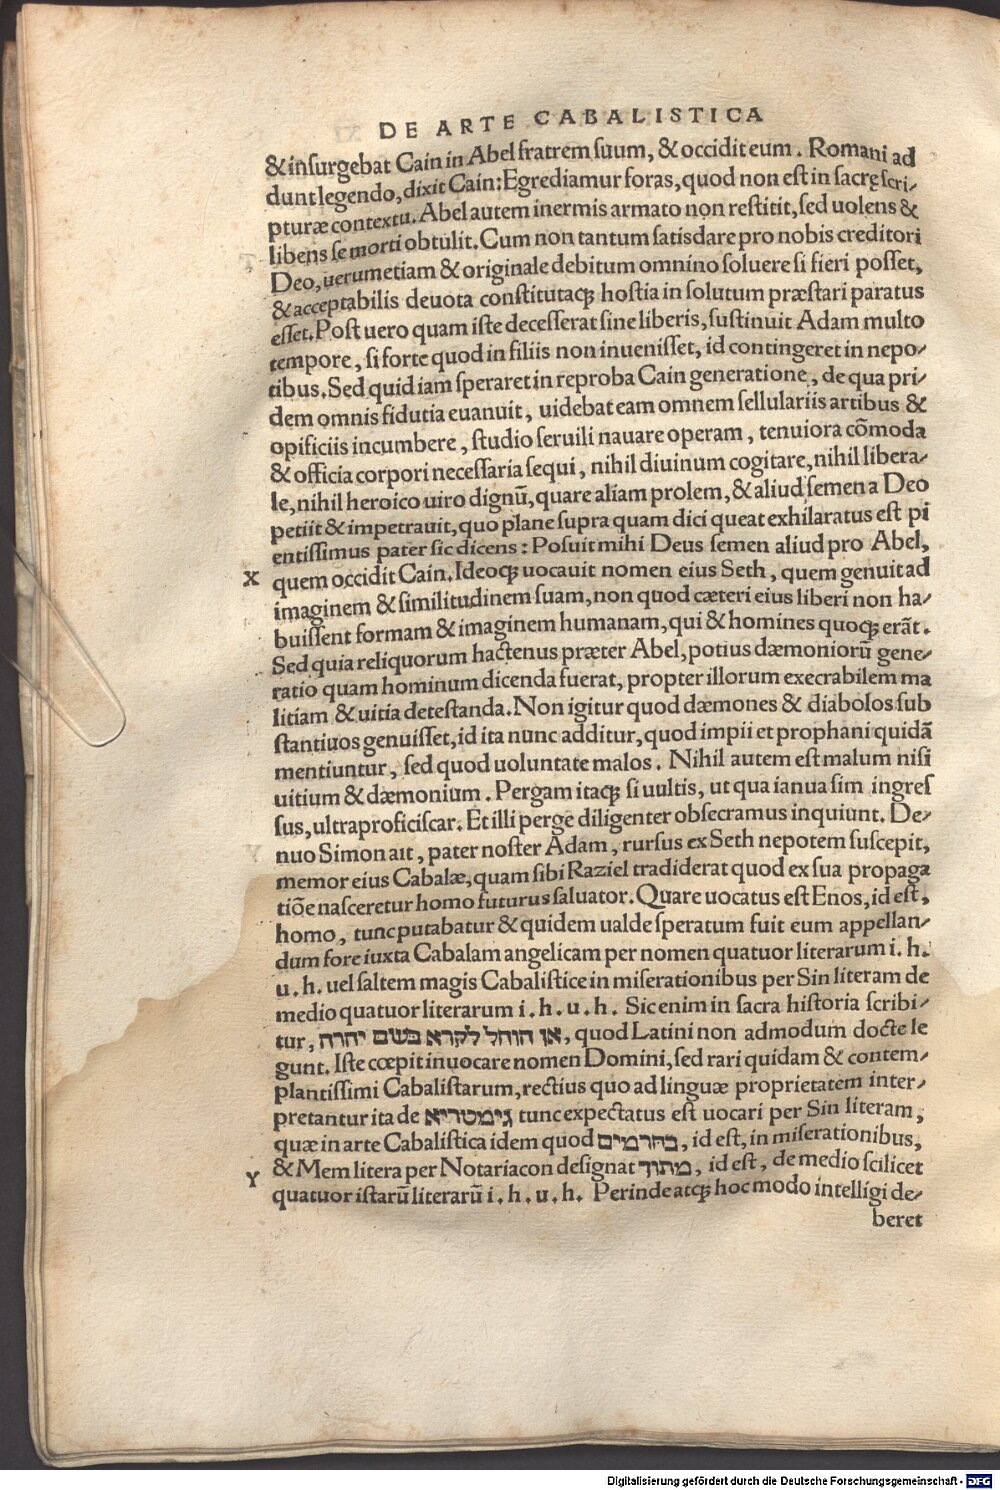 DE ARTE CABALISTICA
& insurgebat Cain in Abel fratrem suum, & occidit eum. Romani ad
dunt legendo, dixit Cain: Egrediamur foras, quod non est in sacrę scri/
pturæ contextu. Abel autem inermis armato non restitit, sed uolens &
libens se morti obtulit. Cum non tantum satisdare pro nobis creditori
Deo, uerumetiam & originale debitum omnino soluere si fieri posset,
& acceptabilis deuota constitutaq; hostia in solutum præstari paratus
esset. Post uero quam iste decesserat sine liberis, sustinuit Adam multo
tempore, si forte quod in filiis non inuenisset, id contingeret in nepo/
tibus. Sed quid iam speraret in reproba Cain generatione, de qua pri/
dem omnis fidutia euanuit, uidebat eam omnem sellulariis artibus &
opificiis incumbere, studio seruili nauare operam, tenuiora cōmoda
& officia corpori necessaria sequi, nihil diuinum cogitare, nihil libera/
le, nihil heroico uiro dignū, quare aliam prolem, & aliud semen a Deo
petiit & impetrauit, quo plane supra quam dici queat exhilaratus est pi
entissimus pater sic dicens: Posuit mihi Deus semen aliud pro Abel,
X quem occidit Cain. Ideoq; uocauit nomen eius Seth, quem genuit ad
imaginem & similitudinem suam, non quod cæteri eius liberi non ha/
buissent formam & imaginem humanam, qui & homines quoq; erāt.
Sed quia reliquorum hactenus præter Abel, potius dæmoniorū gene/
ratio quam hominum dicenda fuerat, propter illorum execrabilem ma
litiam & uitia detestanda. Non igitur quod dæmones & diabolos sub
stantiuos genuisset, id ita nunc additur, quod impii et prophani quidā
mentiuntur, sed quod uoluntate malos. Nihil autem est malum nisi
uitium & dæmonium. Pergam itaq; si uultis, ut qua ianua sim ingres
sus, ultra proficiscar. Et illi perge diligenter obsecramus inquiunt. De/
nuo Simon ait, pater noster Adam, rursus ex Seth nepotem suscepit,
memor eius Cabalæ, quam sibi Raziel tradiderat quod ex sua propaga
tiōe nasceretur homo futurus saluator. Quare uocatus est Enos, id est,
homo, tunc putabatur & quidem ualde speratum fuit eum appellan/
dum fore iuxta Cabalam angelicam per nomen quatuor literarum i. h.
u. h. uel saltem magis Cabalistice in miserationibus per Sin literam de
medio quatuor literarum i. h. u. h. Sic enim in sacra historia scribi/
tur, אז הוחל לקרא בשם יהוה, quod Latini non admodum docte le
gunt. Iste cœpit inuocare nomen Domini, sed rari quidam & contem/
plantissimi Cabalistarum, rectius quo ad linguæ proprietatem inter/
pretantur ita de גימטריא tunc expectatus est uocari per Sin literam,
quæ in arte Cabalistica idem quod בחרמים, id est, in miserationibus,
Y & Mem litera per Notariacon designat מתוך, id est, de medio scilicet
quatuor istarū literarū i. h. u. h. Perinde atq; hoc modo intelligi de/
beret
Digitalisierung gefördert durch die Deutsche Forschungsgemeinschaft - DFG